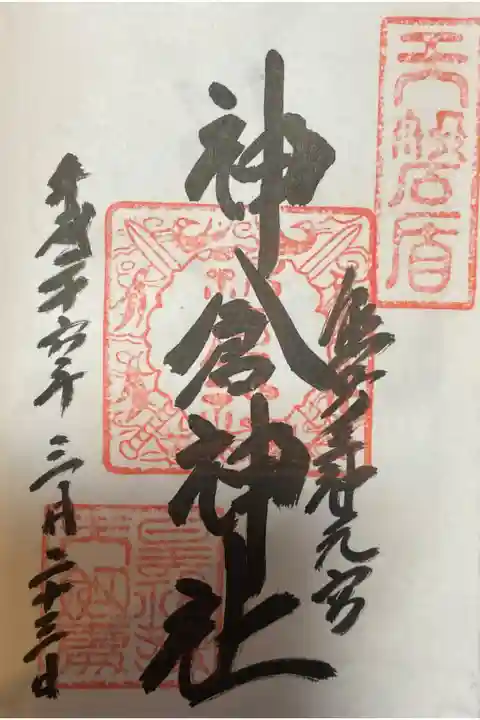 天磐盾
熊野三社元宮
神倉神社
平成二十六年三月二十三日